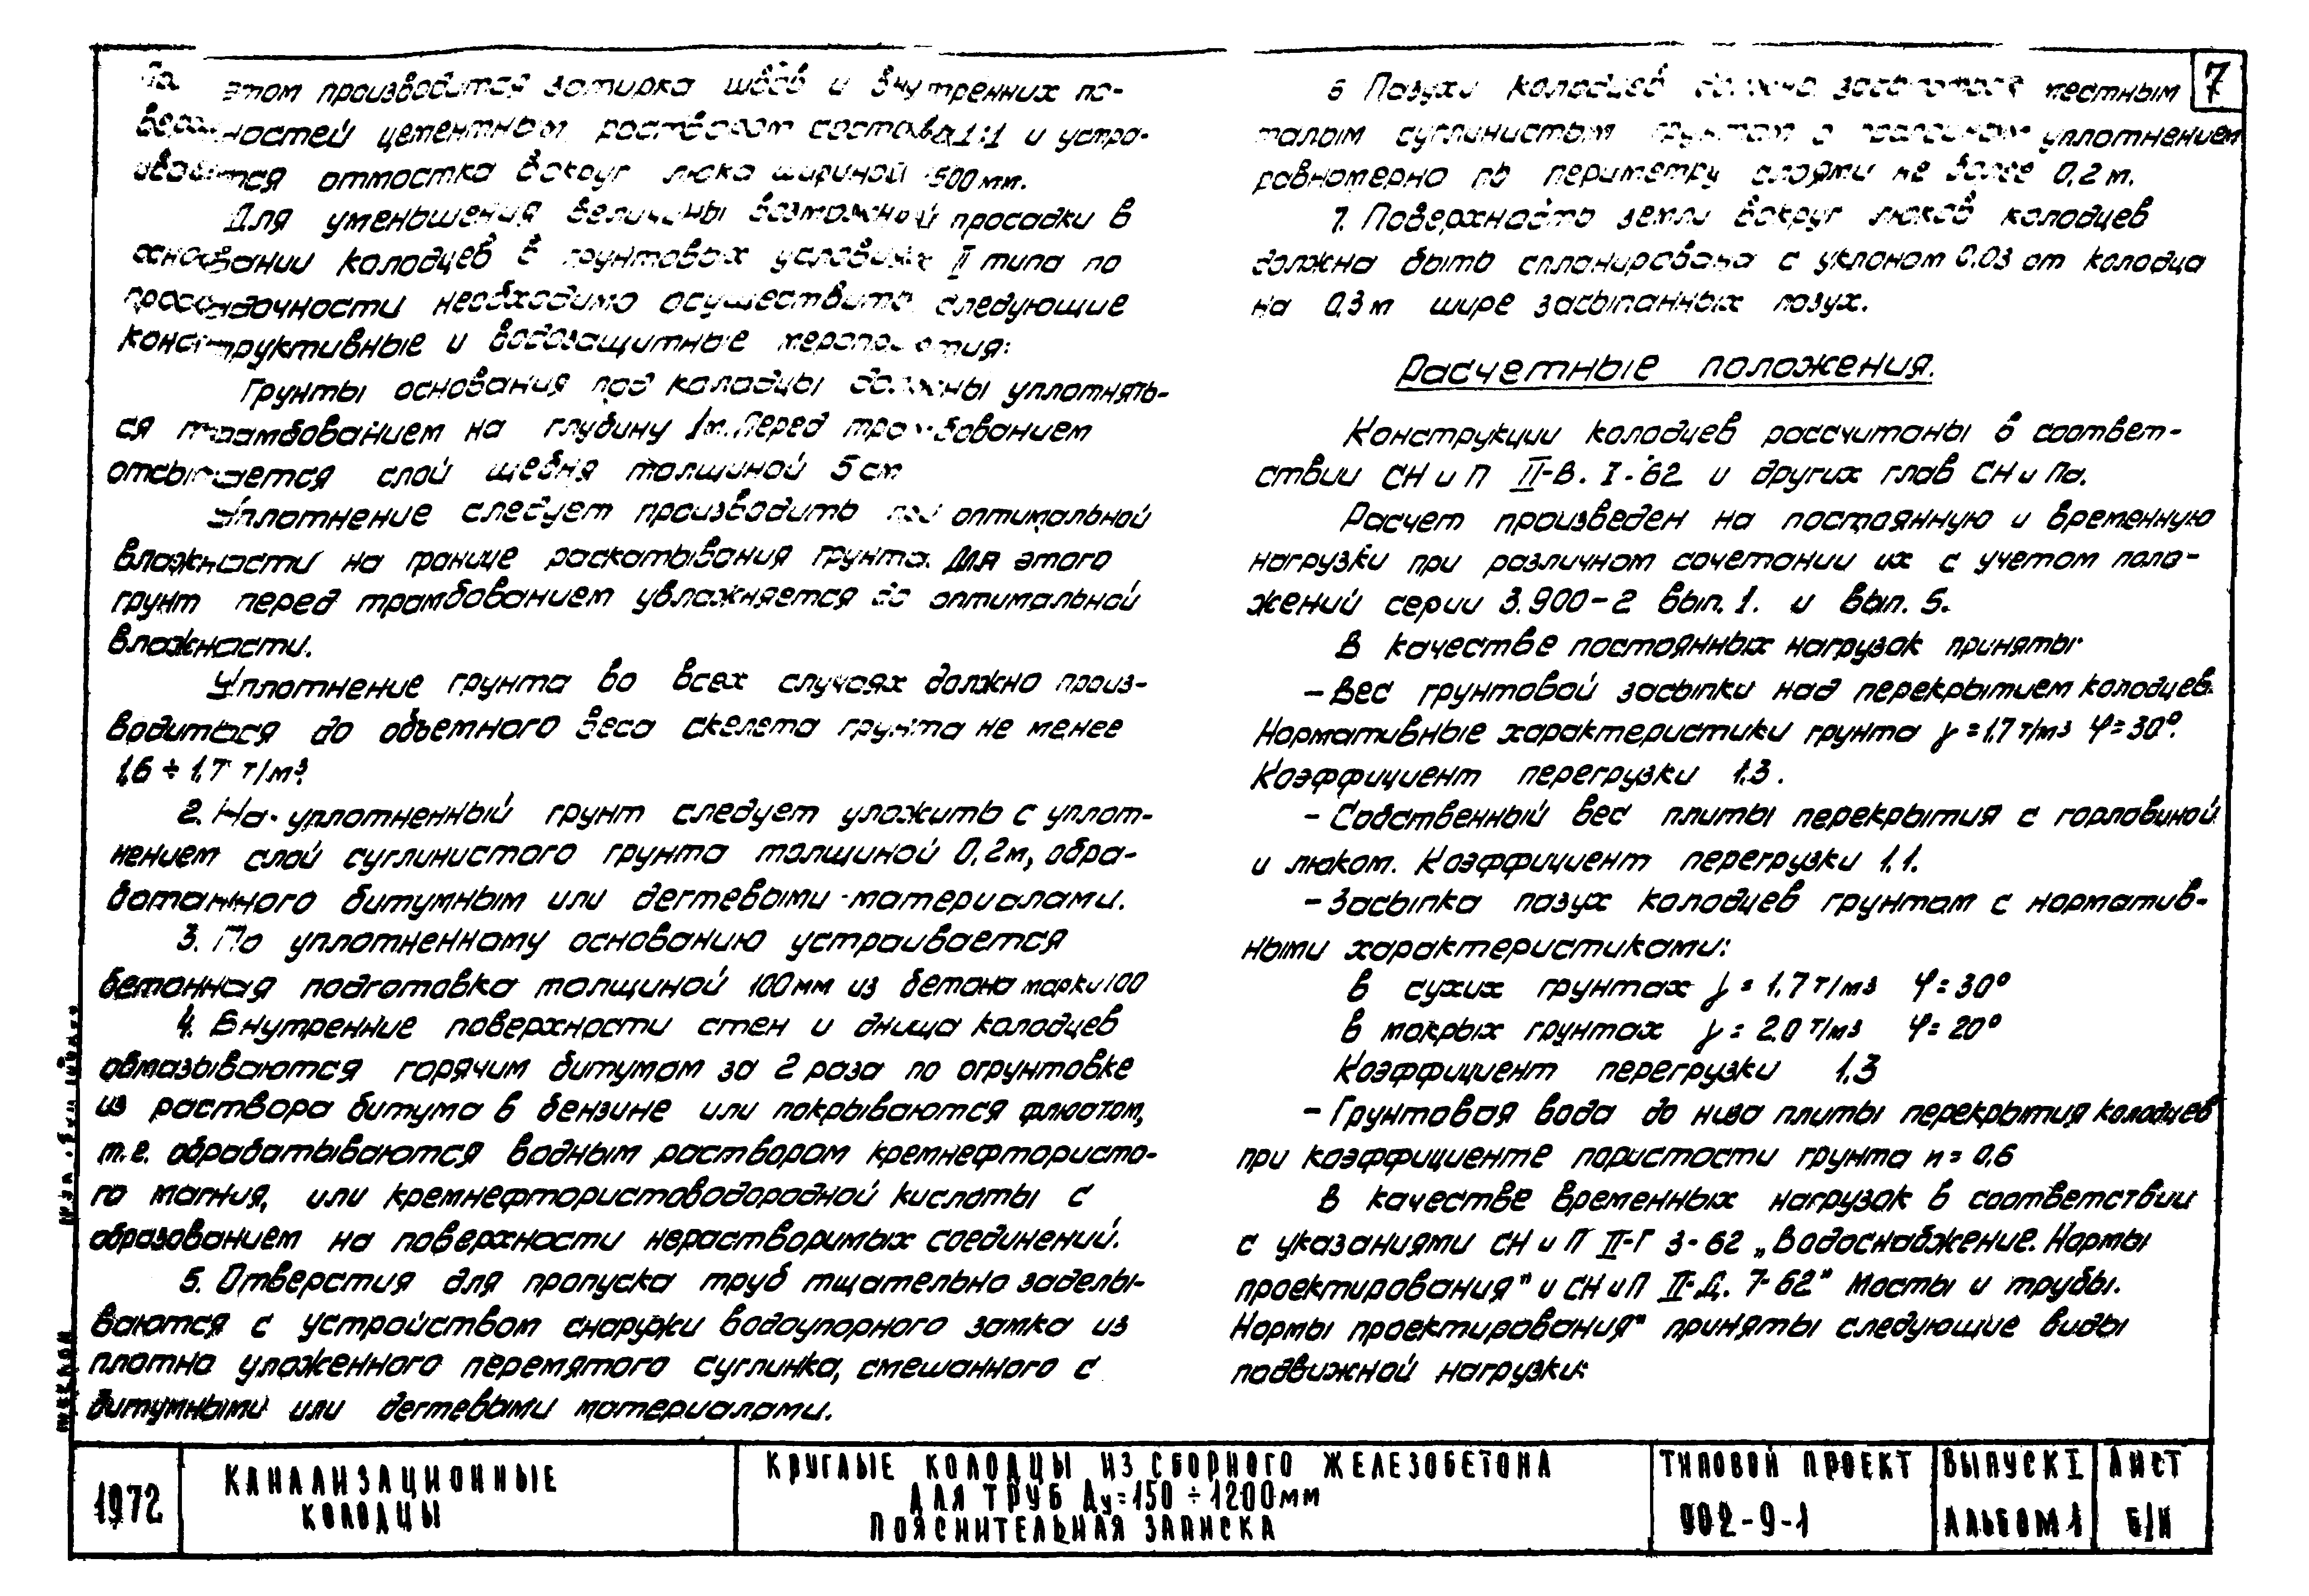 этом производится затирка швов и внутренних по-
верхностей цементным раствором состава 1:1 и устра-
ивается отмостка вокруг люка шириной 500 мм.
Для уменьшения величины возможной просадки в
основании колодцев в грунтовых условиях II типа по
просадочности необходимо осуществить следующие
конструктивные и водозащитные мероприятия:
Грунты основания под колодцы должны уплотнять-
ся трамбованием на глубину 1м. Перед трамбованием
отсыпается слой щебня толщиной 5 см
Уплотнение следует производить при оптимальной
влажности на границе раскатывания грунта. Для этого
грунт перед трамбованием увлажняется до оптимальной
влажности.
Уплотнение грунта во всех случаях должно произ-
водиться до объемного веса скелета грунта не менее
1,6 ÷ 1,7 т/м³.
2. На уплотненный грунт следует уложить с уплот-
нением слой суглинистого грунта толщиной 0,2м, обра-
ботанного битумным или дегтевыми материалами.
3. По уплотненному основанию устраивается
бетонная подготовка толщиной 100мм из бетона марки 100
4. Внутренние поверхности стен и днища колодцев
обмазываются горячим битумом за 2 раза по огрунтовке
из раствора битума в бензине или покрываются флюатом,
т.е. обрабатываются водным раствором кремнефтористо-
го магния, или кремнефтористоводородной кислоты с
образованием на поверхности нерастворимых соединений.
5. Отверстия для пропуска труб тщательно заделы-
ваются с устройством снаружи водоупорного замка из
плотно уложенного перемятого суглинка, смешанного с
битумными или дегтевыми материалами.
7
6 Пазухи колодцев должны засыпаться местным
талым суглинистым грунтом с послойным уплотнением
равномерно по периметру слоями не более 0,2 м.
7. Поверхность земли вокруг люков колодцев
должна быть спланирована с уклоном 0.03 от колодца
на 0,3 м шире засыпанных пазух.
Расчетные положения.
Конструкции колодцев рассчитаны в соответ-
ствии СН и П II-В. I-62 и других глав СН и Па.
Расчет произведен на постоянную и временную
нагрузки при различном сочетании их с учетом поло-
жений серии 3.900-2 вып. 1. и вып. 5.
В качестве постоянных нагрузок приняты
- Вес грунтовой засыпки над перекрытием колодцев.
Нормативные характеристики грунта γ = 1.7 т/м3 φ = 30°.
Коэффициент перегрузки 1.3.
- Собственный вес плиты перекрытия с горловиной
и люком. Коэффициент перегрузки 1.1.
- Засыпка пазух колодцев грунтом с норматив-
ными характеристиками:
в сухих грунтах γ = 1.7 т/м3 φ = 30°
в мокрых грунтах γ = 2.0 т/м3 φ = 20°
Коэффициент перегрузки 1.3
- Грунтовая вода до низа плиты перекрытия колодцев
при коэффициенте пористости грунта n = 0,6
В качестве временных нагрузок в соответствии
с указаниями СН и П II-Г 3-62 „Водоснабжение. Нормы
проектирования" и СН и П II-Д. 7-62" Мосты и трубы.
Нормы проектирования" приняты следующие виды
подвижной нагрузки:
1972
КАНАЛИЗАЦИОННЫЕ
КОЛОДЦЫ
КРУГЛЫЕ КОЛОДЦЫ ИЗ СБОРНОГО ЖЕЛЕЗОБЕТОНА
ДЛЯ ТРУБ Ду=150 ÷ 1200мм
ПОЯСНИТЕЛЬНАЯ ЗАПИСКА
ТИПОВОЙ ПРОЕКТ
902-9-1
ВЫПУСК I
АЛЬБОМ 1
ЛИСТ
Б/Н